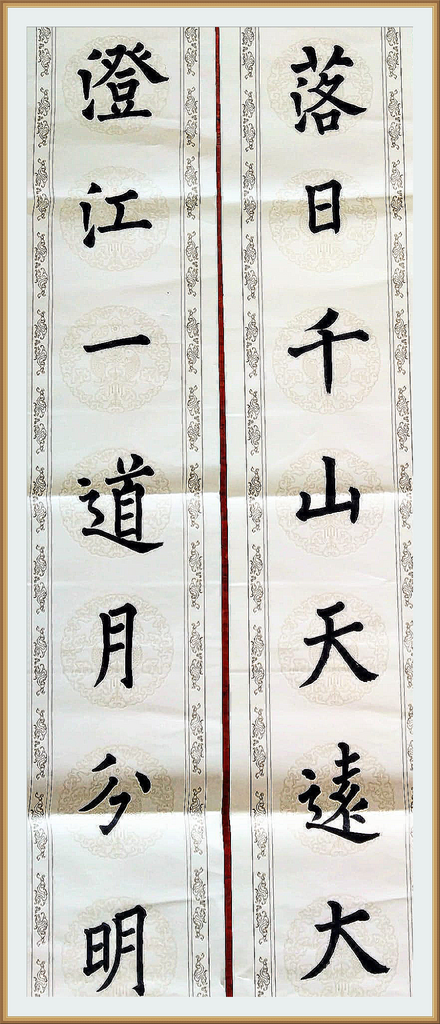 落日千山天遠大
澄江一道月分明